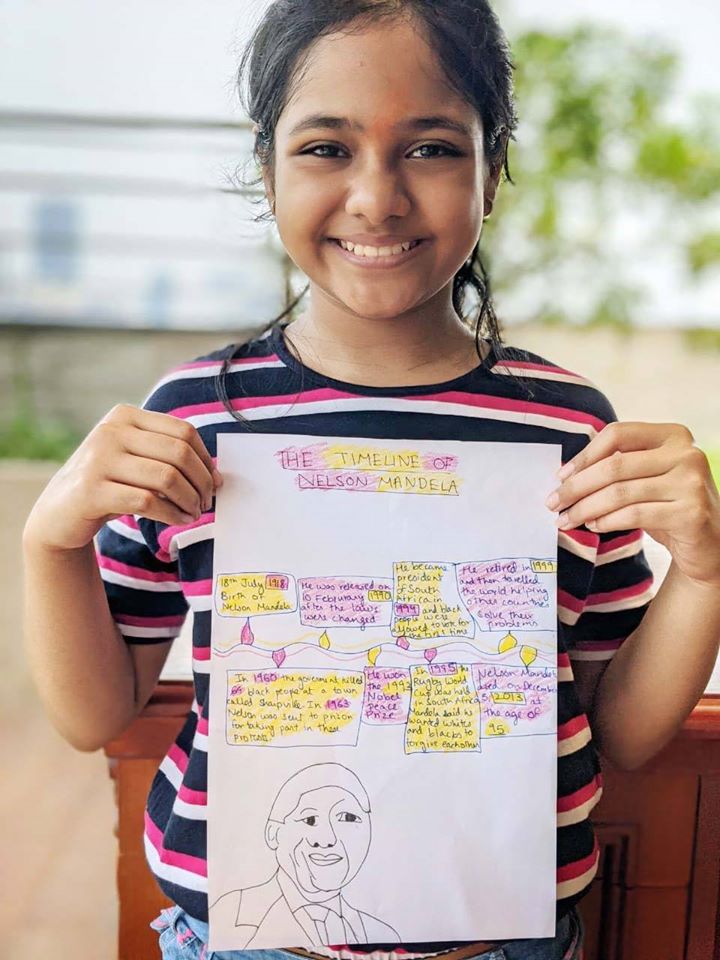 THE TIMELINE OF
NELSON MANDELA
18th July 1918
Birth of
Nelson Mandela
He was released on
10 February 1990
after the laws
were changed
He became
president
of South
Africa in
1994 and black
people were
alowed to vote for
the first time
He retired in 1999
and then
the world helping
other countries
solve their
problems
In 1960 the government killed
69 black people at a town
called Sharpville. In 1963
Nelson was sent to prison
for taking part in these
protests
He won
the 1993
Nobel
peace
Prize
In 1995 the
Rugby world
cup was held
in South Africa
Mandela said he
wanted whites
and blacks to
forgive eachother
Nelson Mandela
died on December
5, 2013 at
the age of
95